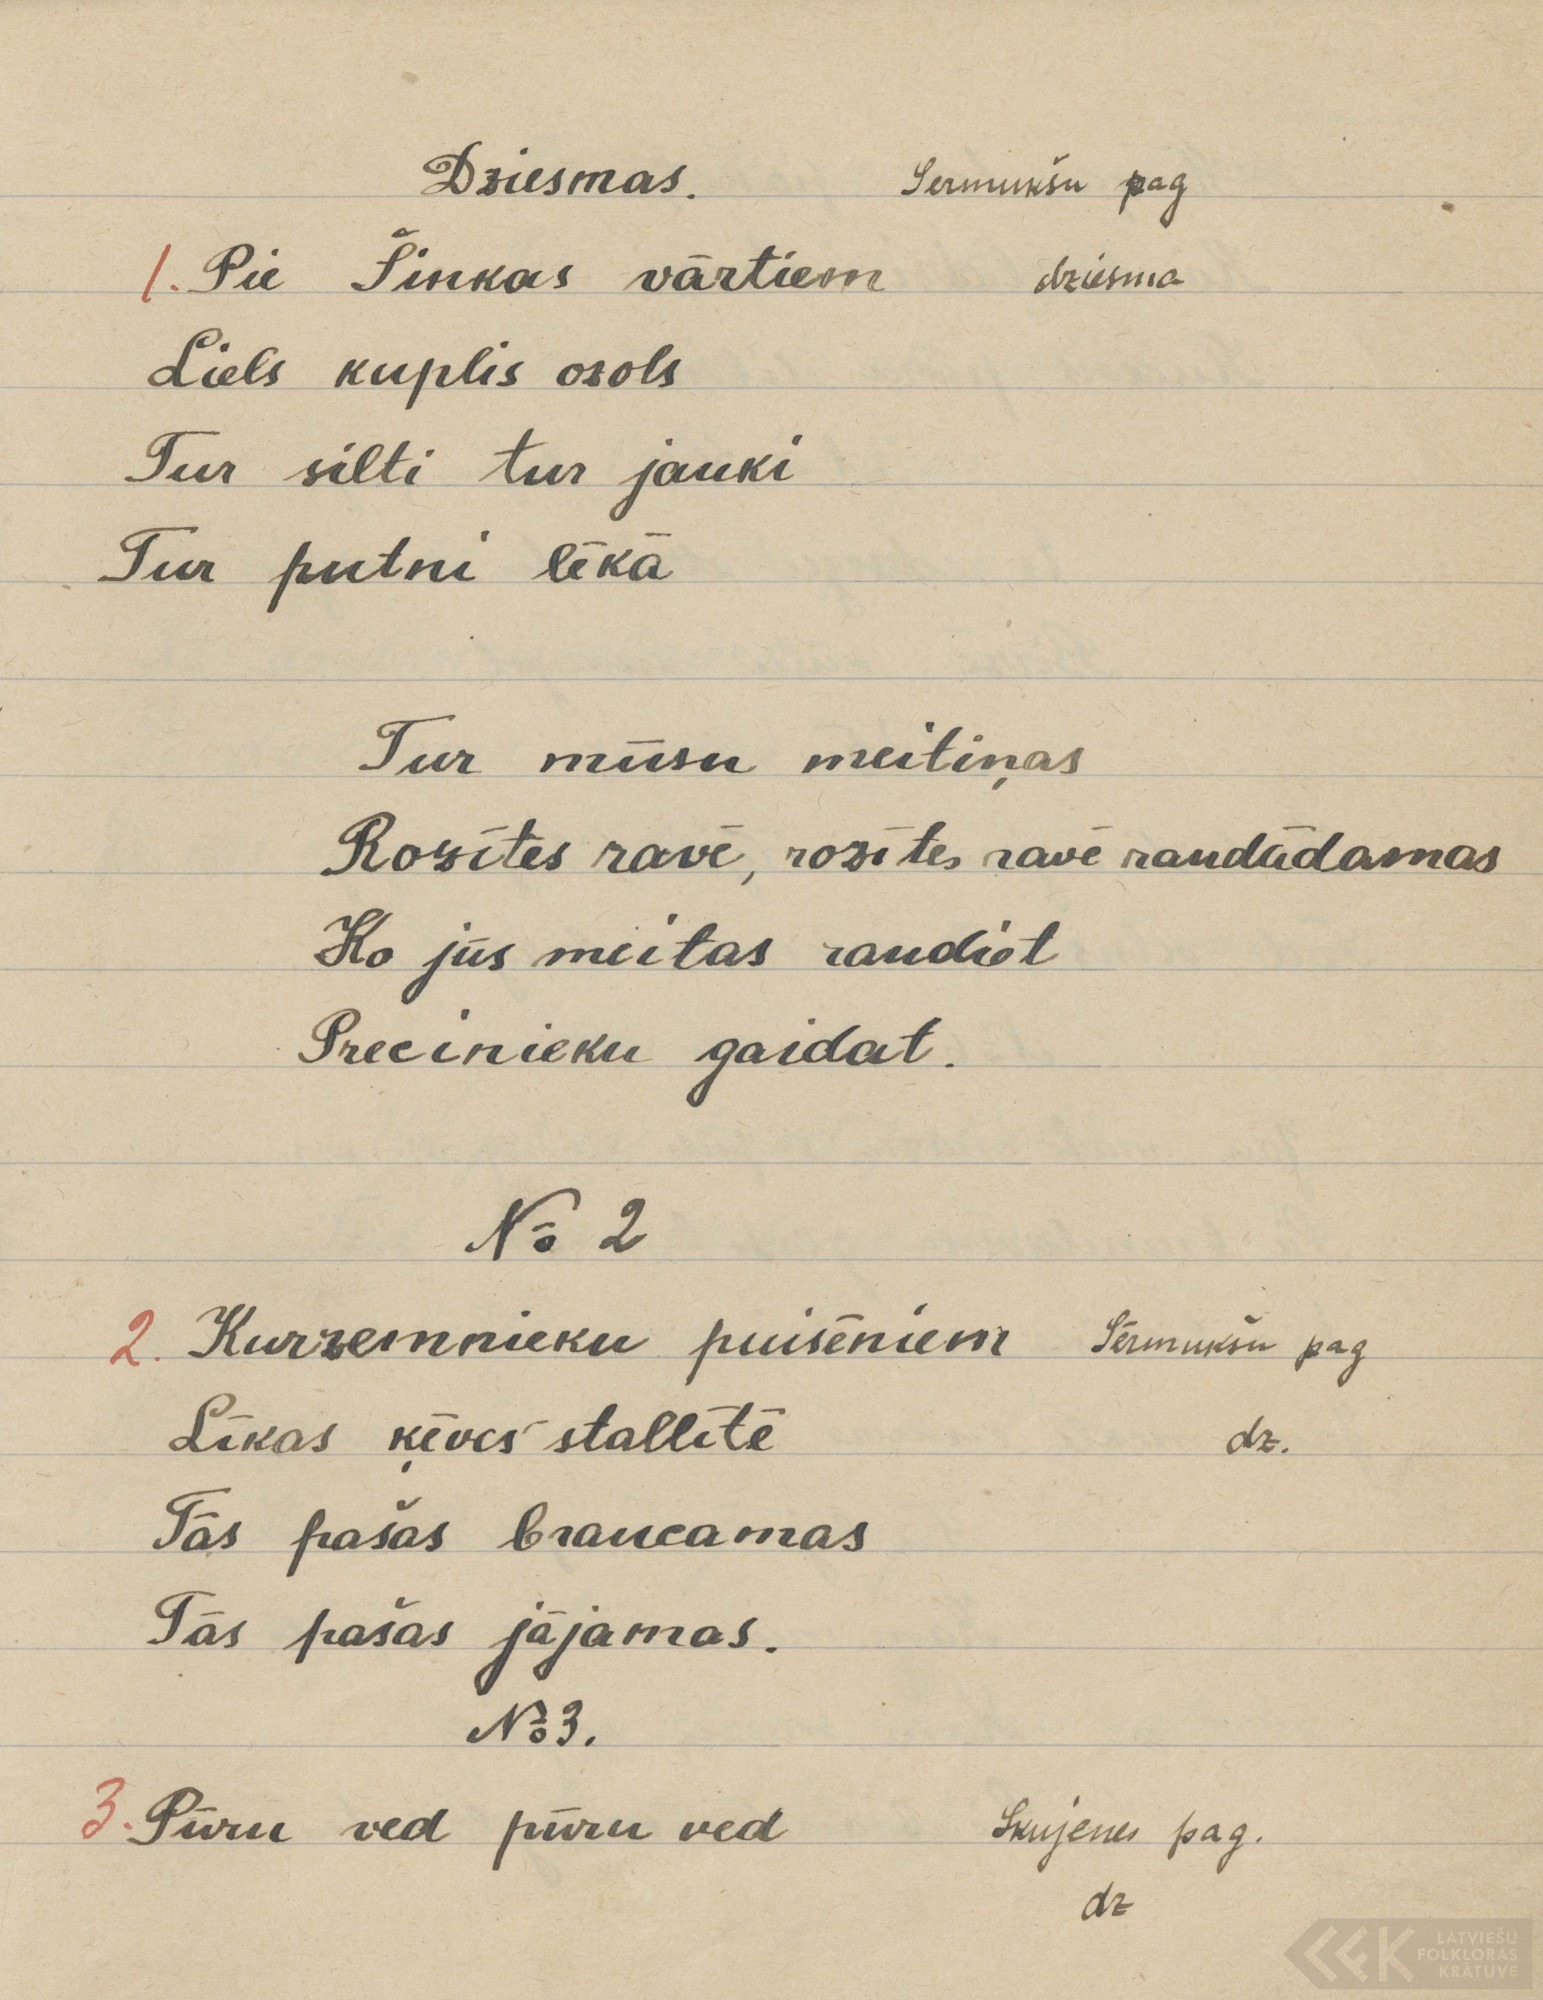 Dziesmas. Sermukšu pag
1. Pie Šinkas vārtiem dziesma
Liels kuplis osols
Tur silti tur jauki
Tur putni lēkā
Tur mūsu meitiņas
Rozītes ravē, rozītes ravē raudādamas
Ko jūs meitas raudiet
Precinieku gaidat.
No 2
2. Kurzemnieku puisēniem Sērmukšu pag
Līkas ķēves stallītē dz.
Tās pašas braucamas
Tās pašas jājamas.
No 3.
3. Pūru ved pūru ved Skujenes pag.
dz
LATVIEŠU
FOLKLORAS
KRĀTUVE